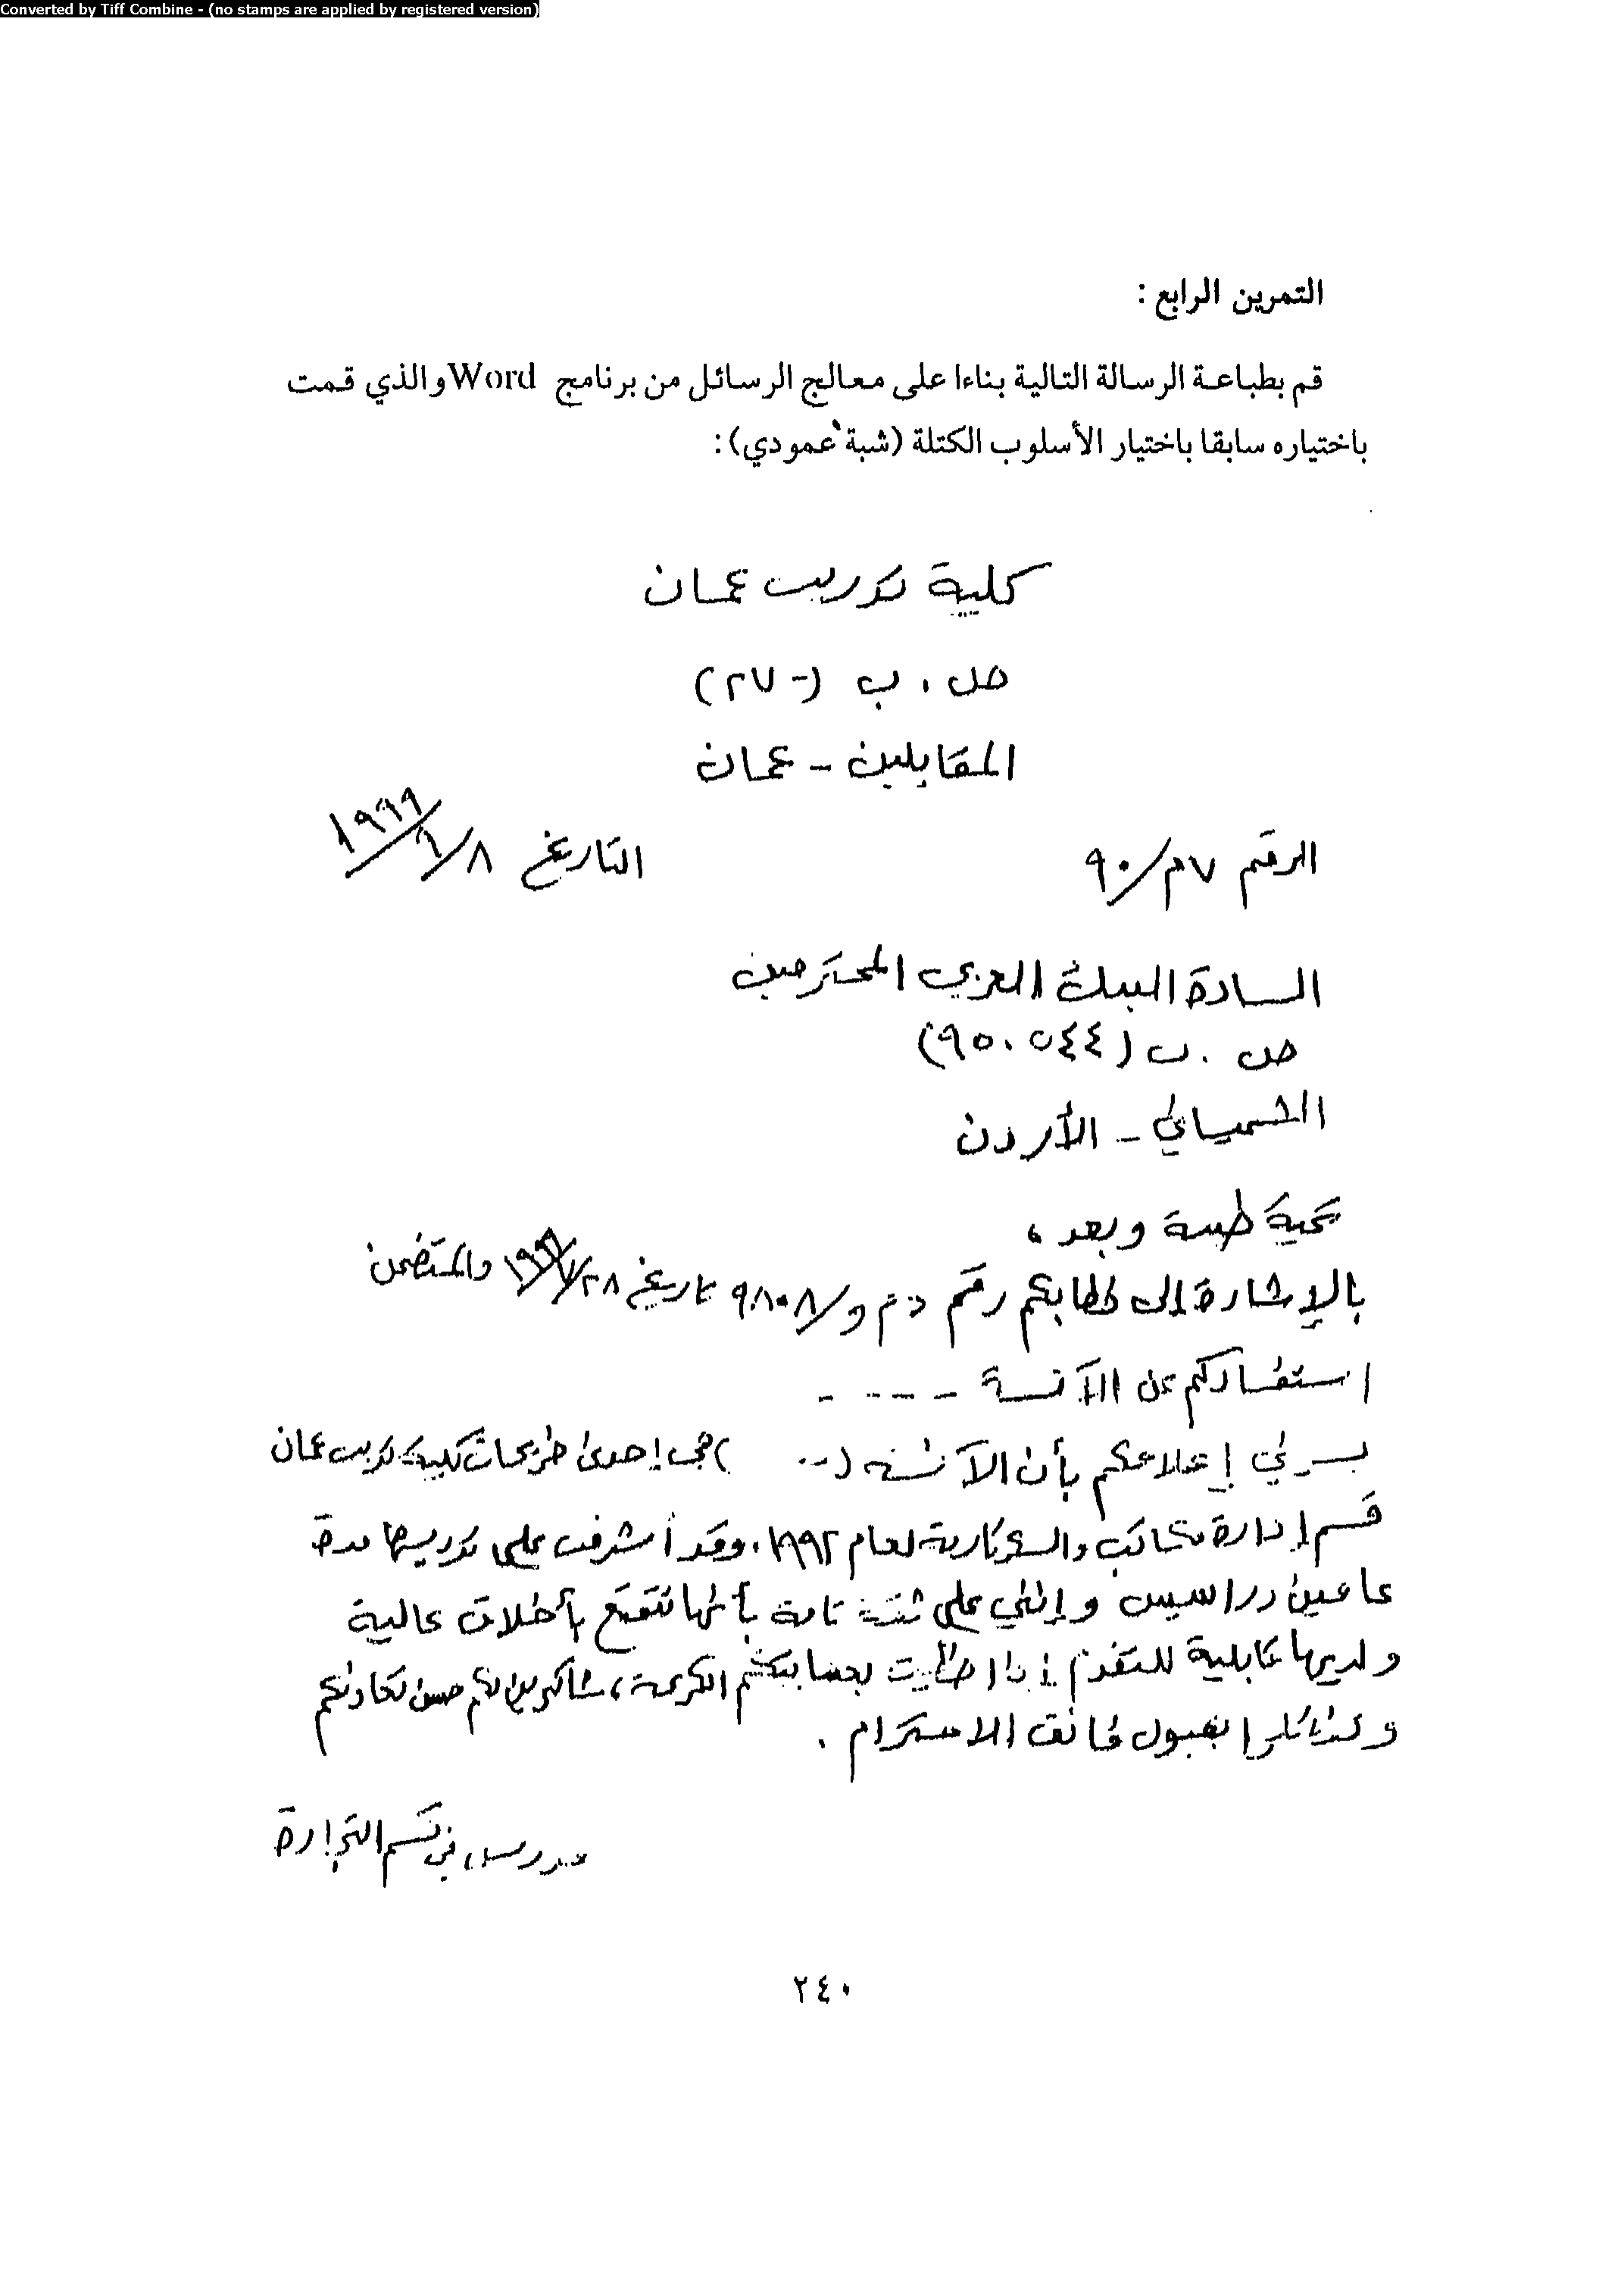 Converted by Tiff Combine - (no stamps are applied by registered version)
التمرين الرابع :
قم بطباعة الرسالة التالية بناءا على معالج الرسائل من برنامج Word والذي قمت
باختياره سابقا باختيار الأسلوب الكتلة (شبة عمودي):
كلية تدريب عمان
ص . ب (٢٧٠)
المقابلين - عمان
الرقم ٧م/٩٠ التاريخ ٨/٦/١٩٩٩
السادة البنك العربي المحترمين
ص . ب (٩٥٠٥٤٤)
الشميساني - الأردن
تحية طيبة وبعد ،
بالإشارة إلى خطابكم رقم د م و/ تاريخ والمتضمن
استفساركم عن الآنسة - - - -
يسرني إعلامكم بأن الآنسة (.. ) هي إحدى خريجات كلية تدريب عمان
قسم إدارة مكاتب والسكرتارية لعام ١٩٩٢، وقد أشرفت على تدريسها مدة
عامين دراسيين وإنني على ثقة تامة بأنها تتمتع بأخلاق عالية
ولديها قابلية للتقدم إذا حظيت بعنايتكم الكريمة، شاكرين لكم حسن تعاونكم
وتفضلوا بقبول فائق الاحترام .
مدرس في قسم التجارة
٢٤٠